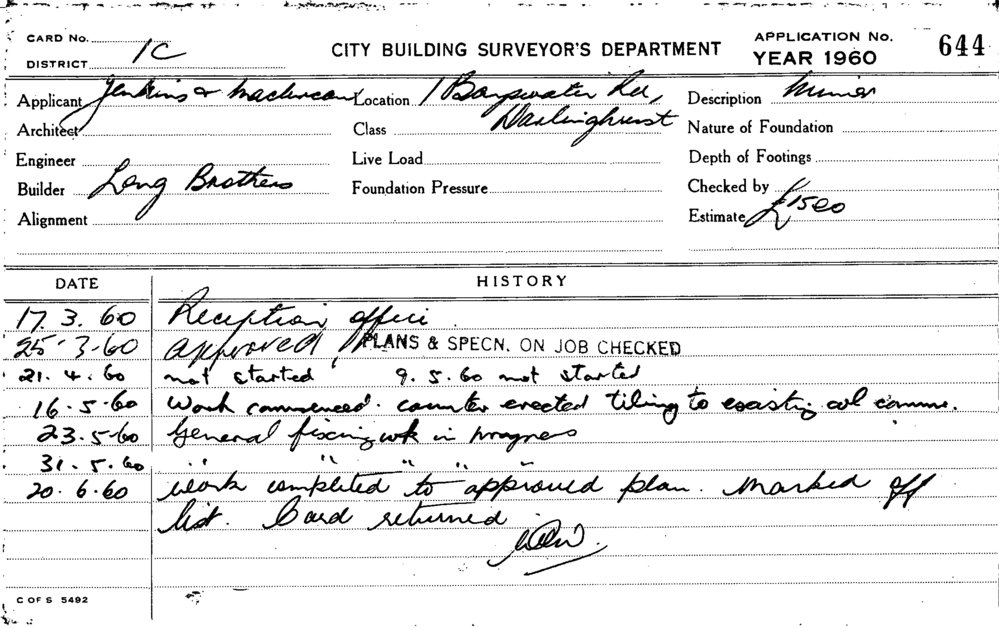 CARD No.
DISTRICT 1C
CITY BUILDING SURVEYOR'S DEPARTMENT
APPLICATION No. 644
YEAR 1960
Applicant Jenkins & Maclurcan
Location 1 Bayswater Rd,
Darlinghurst
Description Minor
Architect
Class
Nature of Foundation
Engineer
Live Load
Depth of Footings
Builder Long Brothers
Foundation Pressure
Checked by
Alignment
Estimate £1500
DATE HISTORY
17.3.60 Reception office
25.3.60 approved PLANS & SPECN. ON JOB CHECKED
21.4.60 not started 9.5.60 not started
16.5.60 Work commenced. counter erected tiling to existing col comm.
23.5.60 General fixing wk in progress
31.5.60 " " " " "
20.6.60 Work completed to approved plan. Marked off
list. Card returned
C OF S 5492